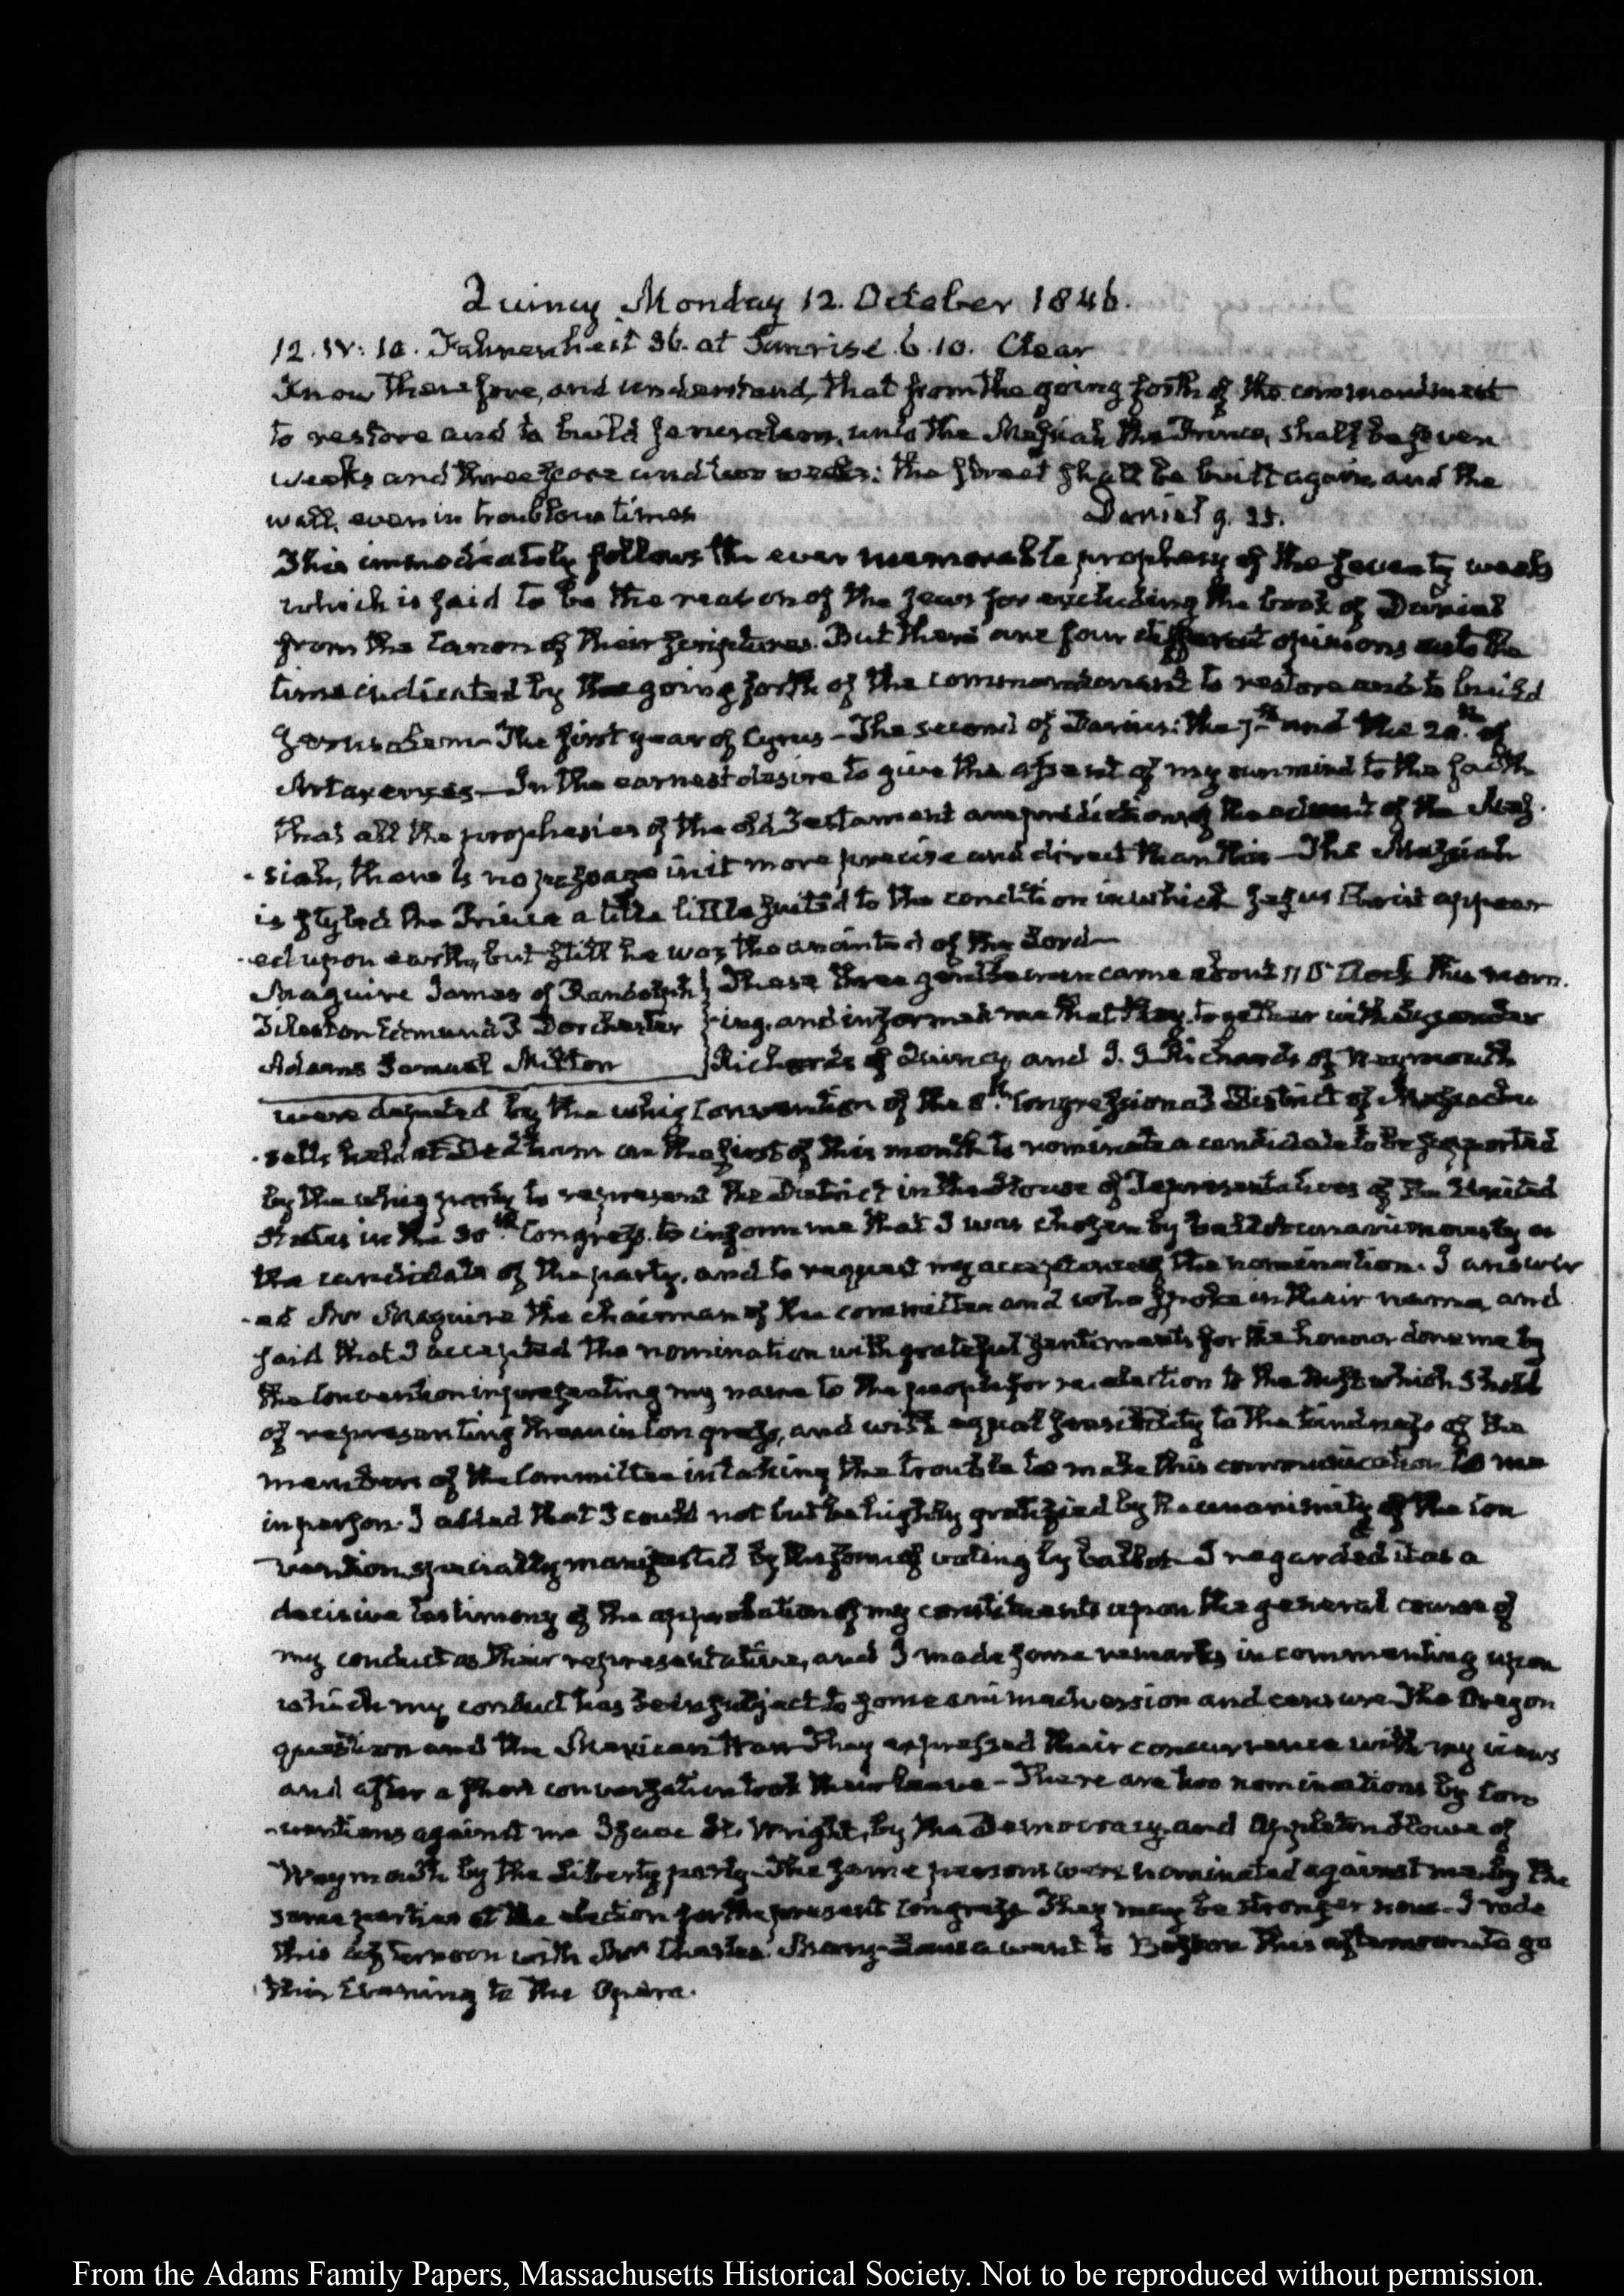 Quincy Monday 12. October 1846.
12. IV: 10. Fahrenheit 36. at Sunrise. 6.10. Clear
Know therefore, and understand, that from the going forth of the commandment
to restore and to build Jerusalem, unto the Messiah the Prince, shall be seven
weeks and threescore and two weeks: the street shall be built again, and the
wall, even in troublous times Daniel 9. 25.
This immediately follows the ever memorable prophesy of the seventy weeks
which is said to be the reason of the Jews for excluding the book of Daniel
from the Canon of their Scriptures. But there are four different opinions as to the
time indicated by the going forth of the commandment to restore and to build
Jerusalem—The first year of Cyrus—The second of Darius: the 7th and the 20th of
Artaxerxes—In the earnest desire to give the assent of my own mind to the faith
that all the prophesies of the old Testament are predictions of the advent of the Mes-
-siah, there is no passage in it more precise and direct than this—The Messiah
is styled the Prince a title little suited to the condition in which Jesus Christ appear
-ed upon earth, but still he was the anointed of the Lord—
Maguire James of Randolph } These three gentlemen came about 11 O'Clock this morn.
Tileston Edmund J Dorchester } -ing, and informed me that they, together with Lysander
Adams Samuel Milton } Richards of Quincy, and J. J Richards of Weymouth
were deputed by the whig Convention of the 8th Congressional District of Massachu
-setts held at Dedham on the first of this month to nominate a candidate to be supported
by the whig party to represent the District in the House of Representatives of the United
States in the 30th Congress. to inform me that I was chosen by ballot unanimously as
the candidate of the party, and to request my acceptance of the nomination. I answer
-ed Mr Maguire the chairman of the committee and who spoke in their name, and
said that I accepted the nomination with grateful sentiments for the honour done me by
the Convention in presenting my name to the people for re-election to the trust which I hold
of representing them in Congress, and with equal sensibility to the kindness of the
members of the Committee in taking the trouble to make this communication to me
in person. I added that I could not but be highly gratified by the unanimity of the Con
vention, specially manifested by the form of voting by ballot—I regarded it as a
decisive testimony of the approbation of my constituents upon the general course of
my conduct as their representative, and I made some remarks in commenting upon
which my conduct has been subject to some animadversion and censure—The Oregon
question and the Mexican War—They expressed their concurrence with my views
and after a short conversation took their leave—There are two nominations by Con
-ventions against me Isaac H. Wright, by the Democracy, and Appleton Howe of
Weymouth by the Liberty party—The same persons were nominated against me by the
same parties at the election for the present Congress—They may be stronger now—I rode
this afternoon with Mrs Charles. Mary-Louisa went to Boston this afternoon to go
this Evening to the Opera.
From the Adams Family Papers, Massachusetts Historical Society. Not to be reproduced without permission.